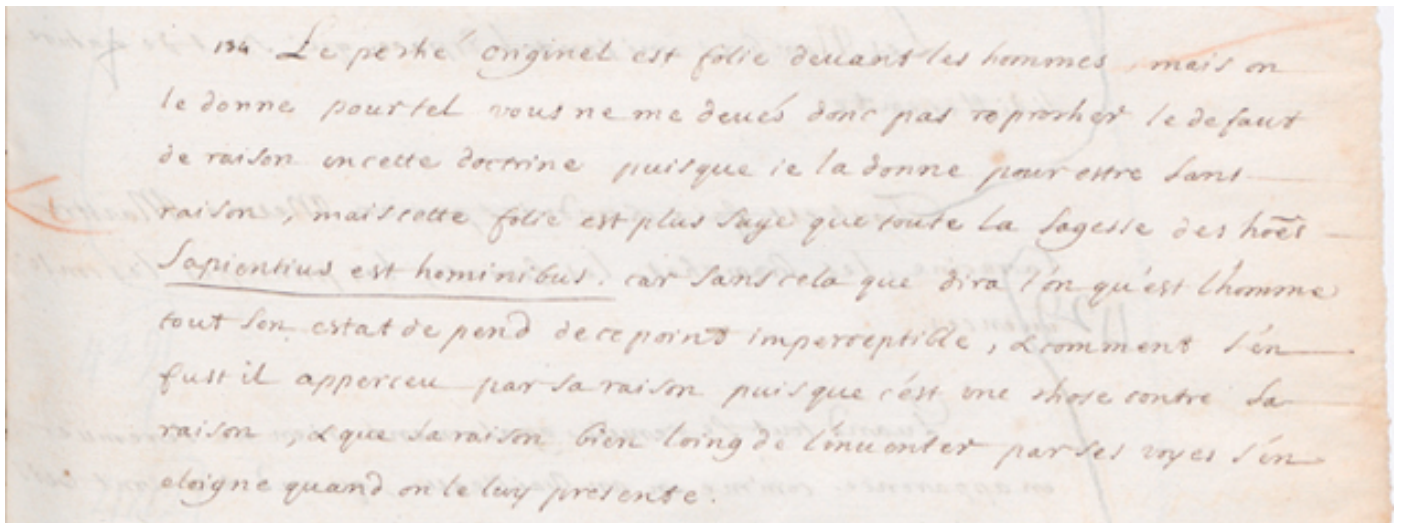 134 Le peché originel est folie deuant les hommes, mais on
le donne pour tel vous ne me deués donc pas reprocher le defaut
de raison en cette doctrine puisque ie la donne pour estre sans
raison, mais cette folie est plus sage que toute la sagesse des hoẽs
Sapientius est hominibus. car sans cela que dira l'on qu'est l'homme
tout son estat depend de ce point imperceptible, & comment s'en
fust il apperceu par sa raison puisque c'est une chose contre sa
raison, & que sa raison bien loing de l'inuenter par ses voyes s'en
eloigne quand on le luy presente.